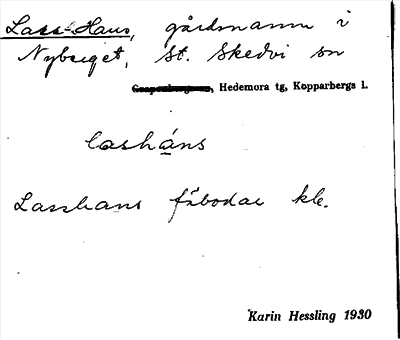 Lass-Hans, gårdsnamn i
Nyberget, St. Skedvi sn
, Hedemora tg, Kopparbergs l.
lasháns
Lasshans fäbodar kle.
Karin Hessling 1930